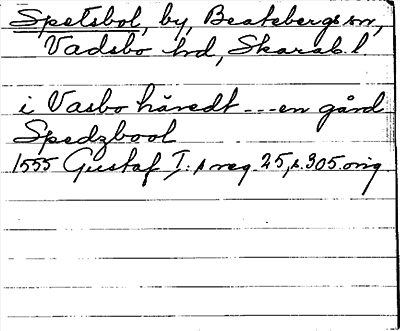 Spetsbol, by, Beatebergs sn,
Vadsbo hd, Skarab. l
i Vasbo häredt --- en gård
Spedzbool
1555 Gustaf I:s reg. 25, s. 305. orig